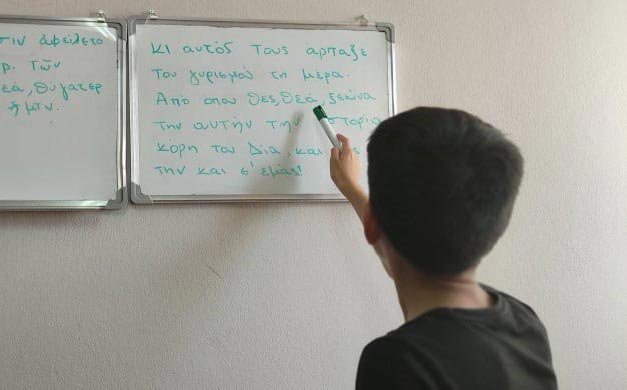 ἀφείλετο
Τῶν
θύγατερ
ἡμῖν.
κι αυτός τους αρπαξε
Του γυρισμού τη μέρα.
Από οπου θες, θεά, ξεκίνα
την αυτήν την
κόρη του Δία, και
την και σ' εμάς!